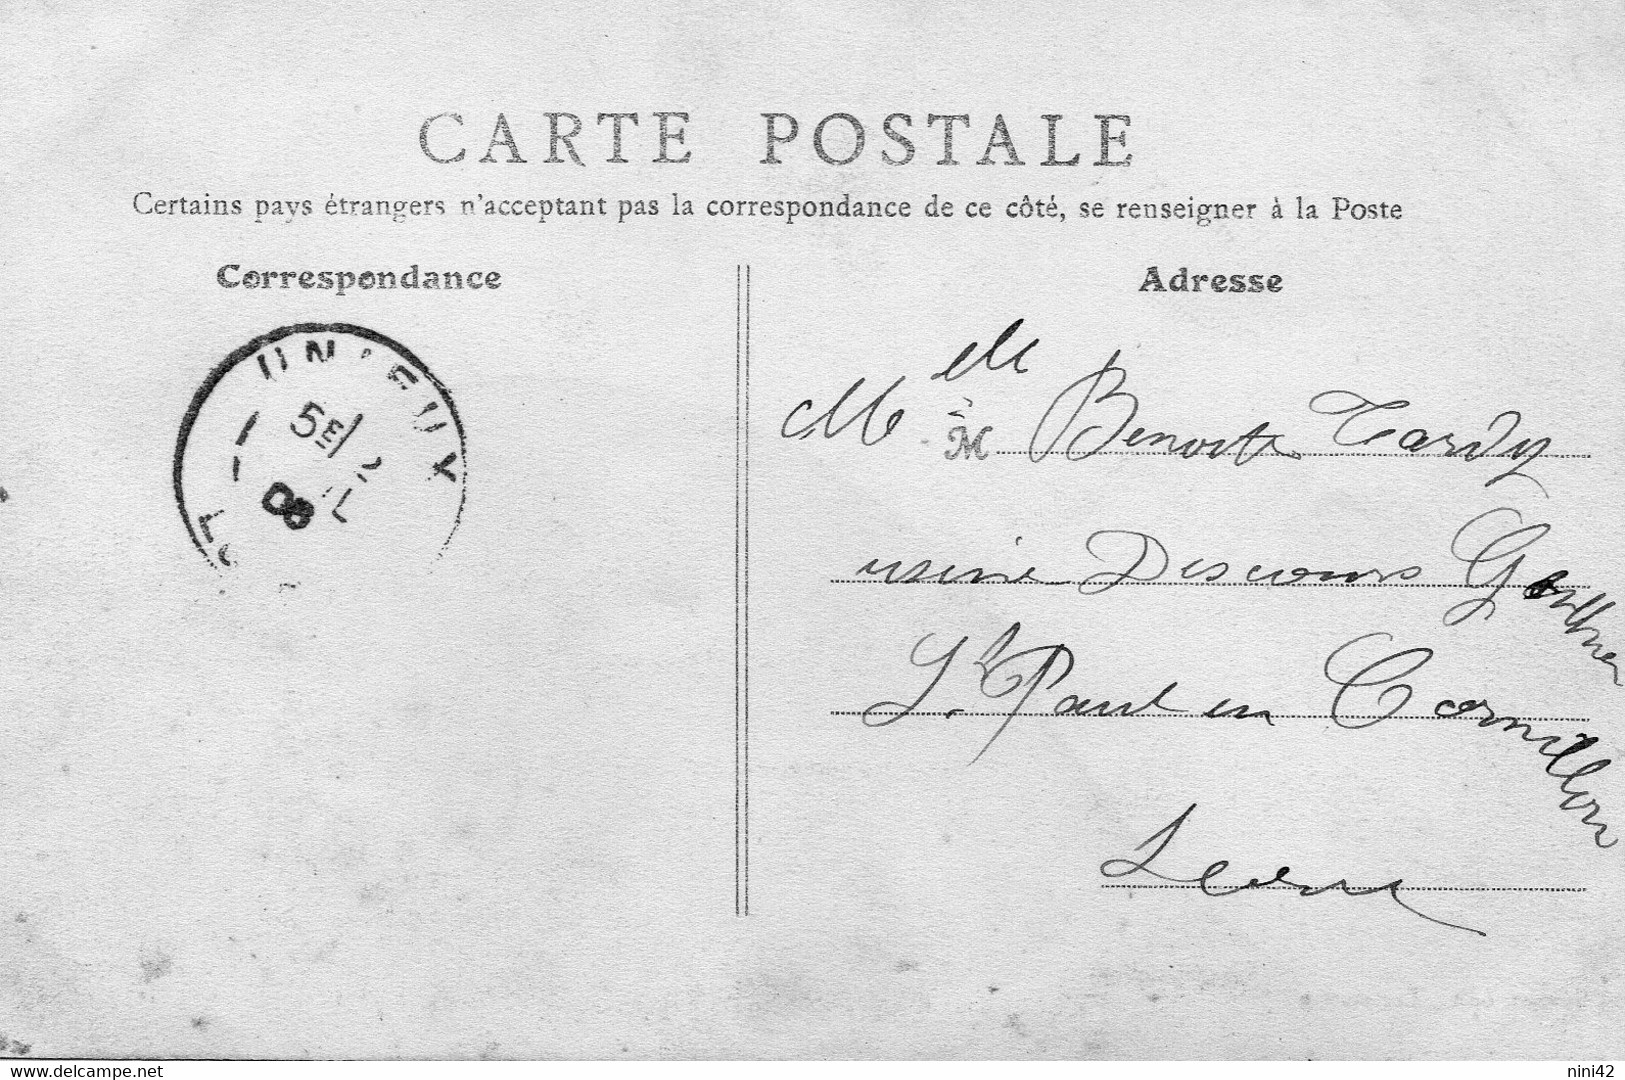 CARTE POSTALE
Certains pays étrangers n'acceptant pas la correspondance de ce côté, se renseigner à la Poste
Correspondance
Adresse
UNIEUX
5E/
08
Mlle
M Benoite Tardy
usine Descours
St Paul en Cornillon
Loire
www.delcampe.net
nini42